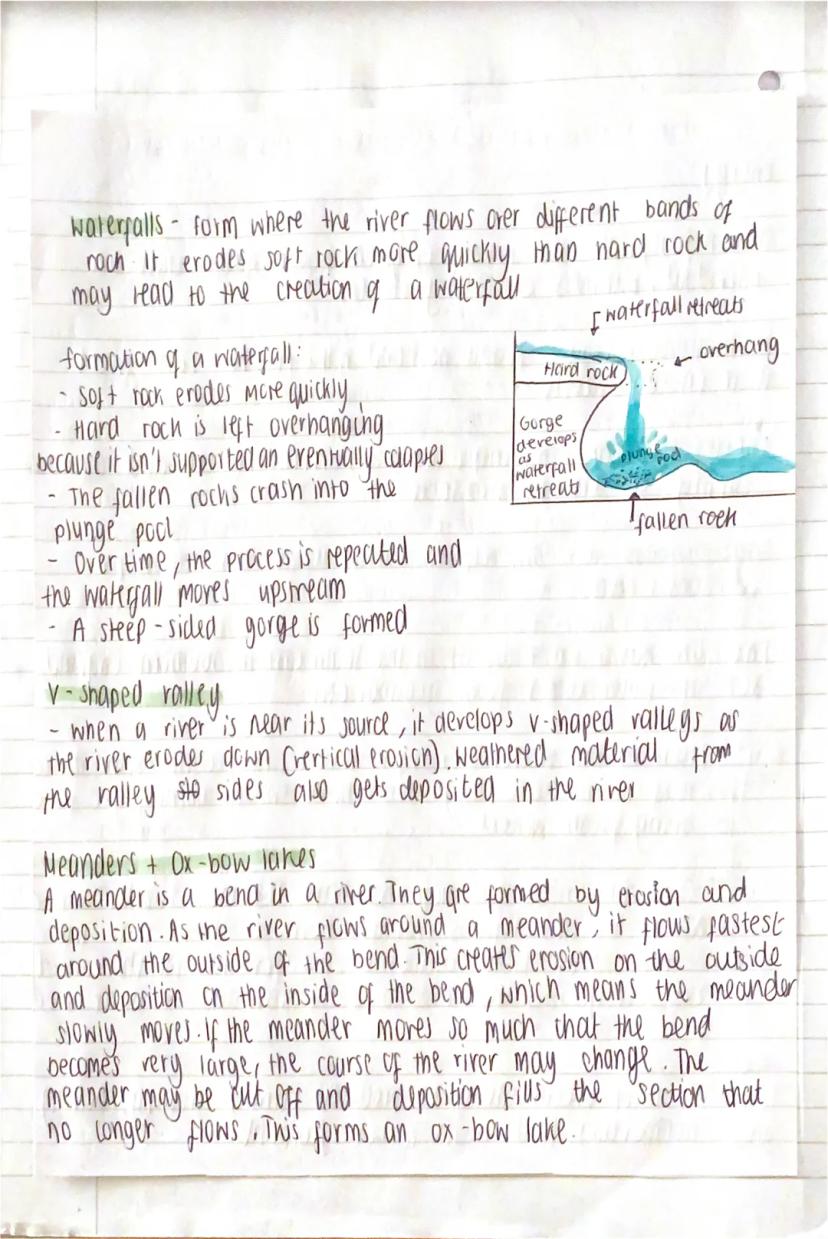 Waterfalls - form where the river flows over different bands of
rock It erodes soft rock more quickly than hard rock and
may lead to the creation of a waterfall
waterfall retreats
overhang
Hard rock
Gorge
develops
as
waterfall
retreats
plunge pool
fallen rock
formation of a waterfall:
- Soft rock erodes more quickly
- Hard rock is left overhanging
because it isn't supported an eventually colapses
- The fallen rocks crash into the
plunge pool
- Over time, the process is repeated and
the waterfall moves upstream
- A steep-sided gorge is formed
V-shaped valley
- when a river is near its source, it develops v-shaped valleys as
the river erodes down (vertical erosion). weathered material from
the valley sides also gets deposited in the river
Meanders + Ox-bow lakes
A meander is a bend in a river. They are formed by erosion and
deposition. As the river flows around a meander, it flows fastest
around the outside of the bend. This creates erosion on the outside
and deposition on the inside of the bend, which means the meander
slowly moves. If the meander moves so much that the bend
becomes very large, the course of the river may change. The
meander may be cut off and deposition fills the section that
no longer flows. This forms an ox-bow lake.